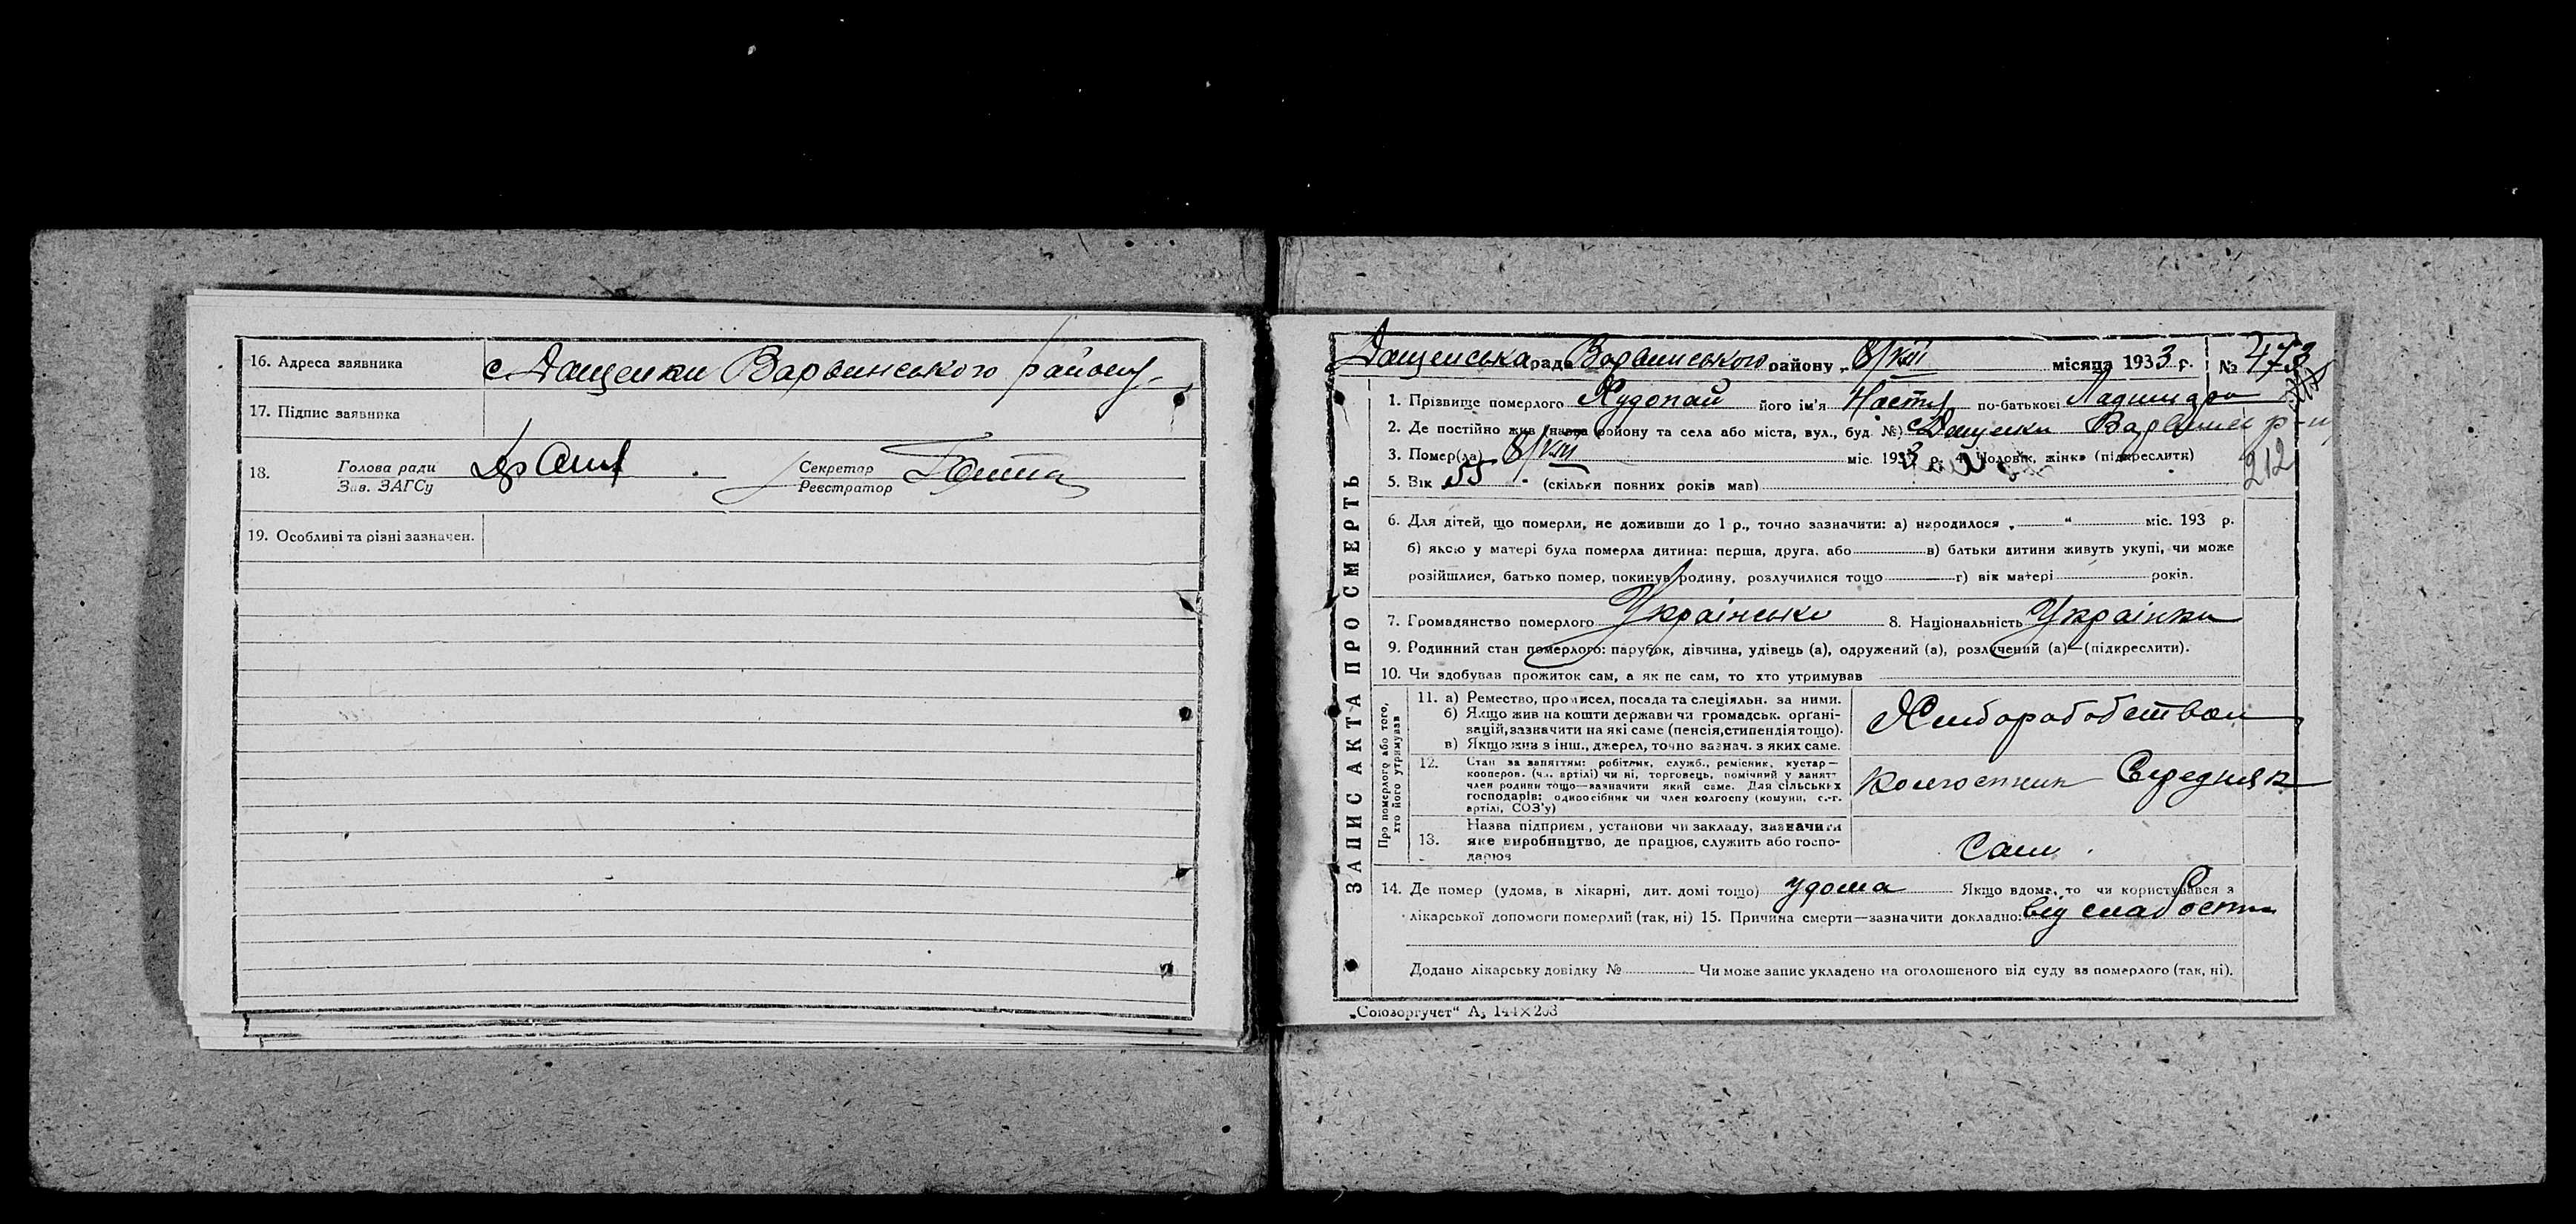 16. Адреса заявника с. Дащенки Варвинського району
17. Підпис заявника
18. Голова ради Секретар
Зав. ЗАГСу Реєстратор
19. Особливі та різні зазначен.
Дащенська рада Варвинського району „8/VIII місяца 1933 р. № 473
1. Прізвище померлого Худопай його ім'я Настя по-батькові
2. Де постійно жив (назва району та села або міста, вул., буд. №) с. Дащенки Варвинс р-ну
212
3. Помер(ла) 8/VIII міс. 1933 р. 4. Чоловік, жінка (підкреслити)
5. Вік 55 (скільки повних років мав)
6. Для дітей, що померли, не доживши до 1 р., точно зазначити: а) народилося „ “ міс. 193 р.
б) якою у матері була померла дитина: перша, друга, або в) батьки дитини живуть укупі, чи може
розійшлися, батько помер, покинув родину, розлучилися тощо г) вік матері років.
7. Громадянство померлого Українська 8. Національність Українка
9. Родинний стан померлого: парубок, дівчина, удівець (а), одружений (а), розлучений (а)—(підкреслити).
10. Чи здобував прожиток сам, а як не сам, то хто утримував
ЗАПИС АКТА ПРО СМЕРТЬ
Про померлого або того,
хто його утримував
11. а) Ремество, промисел, посада та спеціяльн. за ними.
б) Якщо жив на кошти держави чи громадськ. органі-
зацій, зазначити на які саме (пенсія, стипендія тощо).
в) Якщо жив з інш., джерел, точно зазнач. з яких саме.
Хліборобством
12. Стан за заняттям: робітник, служб., ремісник, кустар—
кооперов. (чл. артілі) чи ні, торговець, помічний у занятт
член родини тощо—зазначити який саме. Для сільських
господарів: одноосібник чи член колгоспу (комуни, с.-г.
артілі, СОЗ'у)
Колгоспник Середняк
13. Назва підприєм., установи чи закладу, зазначити
яке виробництво, де працює, служить або госпо-
дарює
Сам.
14. Де помер (удома, в лікарні, дит. домі тощо) удома Якщо вдома, то чи користувався з
лікарської допомоги померлий (так, ні) 15. Причина смерти—зазначити докладно: від слабости
Додано лікарську довідку № Чи може запис укладено на оголошеного від суду за померлого (так, ні).
„Союзоргучет“ А5 144×203